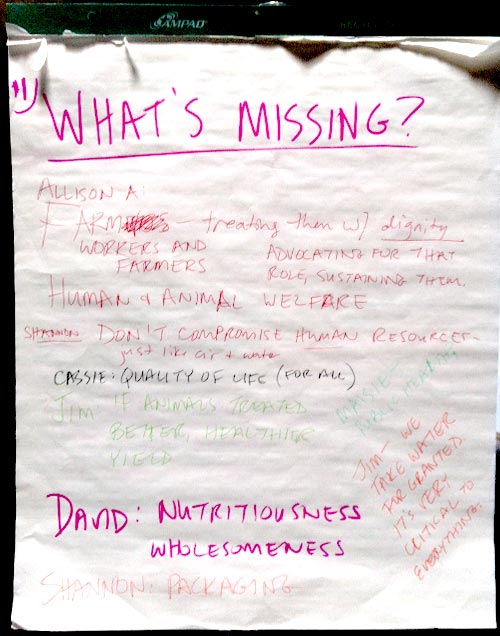 AMPAD
11)
WHAT'S MISSING?
ALLISON A:
FARM — treating them w/ dignity
WORKERS AND
FARMERS
ADVOCATING FOR THAT
ROLE, SUSTAINING THEM.
HUMAN & ANIMAL WELFARE
SHANNON DON'T COMPROMISE HUMAN RESOURCES-
just like air + water
CASSIE: QUALITY OF LIFE (FOR ALL)
JIM: IF ANIMALS TREATED
BETTER, HEALTHIER
YIELD
MAISIE:
PUBLIC HEALTH
JIM- WE
TAKE WATER
FOR GRANTED.
IT'S VERY
CRITICAL TO
EVERYTHING.
DAVID: NUTRITIOUSNESS
WHOLESOMENESS
SHANNON: PACKAGING